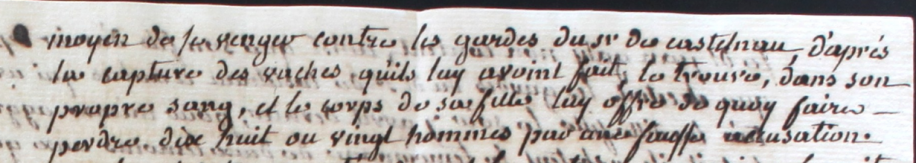 moyen de se venger contre les gardes du sr de castelnau d'aprés
la capture des vaches qu'ils luy avoint fait, le trouve, dans son
propre sang, et le corps de sa fille luy offre de quoy faire
perdre dix huit ou vingt hommes par une fausse accusation.